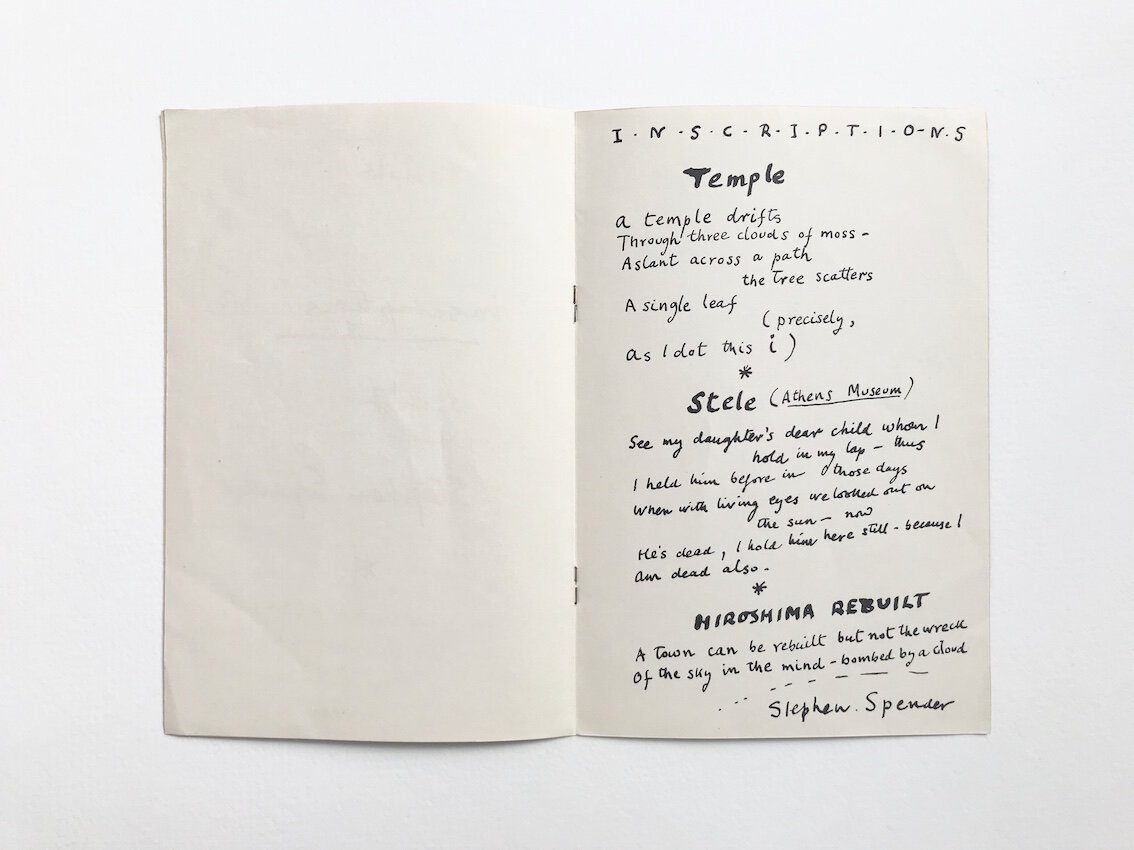 I·N·S·C·R·I·P·T·I·O·N·S
Temple
a temple drifts
Through three clouds of moss -
Aslant across a path
the Tree scatters
A single leaf
(precisely,
as I dot this i)
*
Stele (Athens Museum)
See my daughter's dear child whom I
hold in my lap - thus
I held him before in those days
When with living eyes we looked out on
the sun - now
He's dead, I hold him here still - because I
am dead also.
*
HIROSHIMA REBUILT
A Town can be rebuilt but not the wreck
Of the sky in the mind - bombed by a cloud
Stephen. Spender